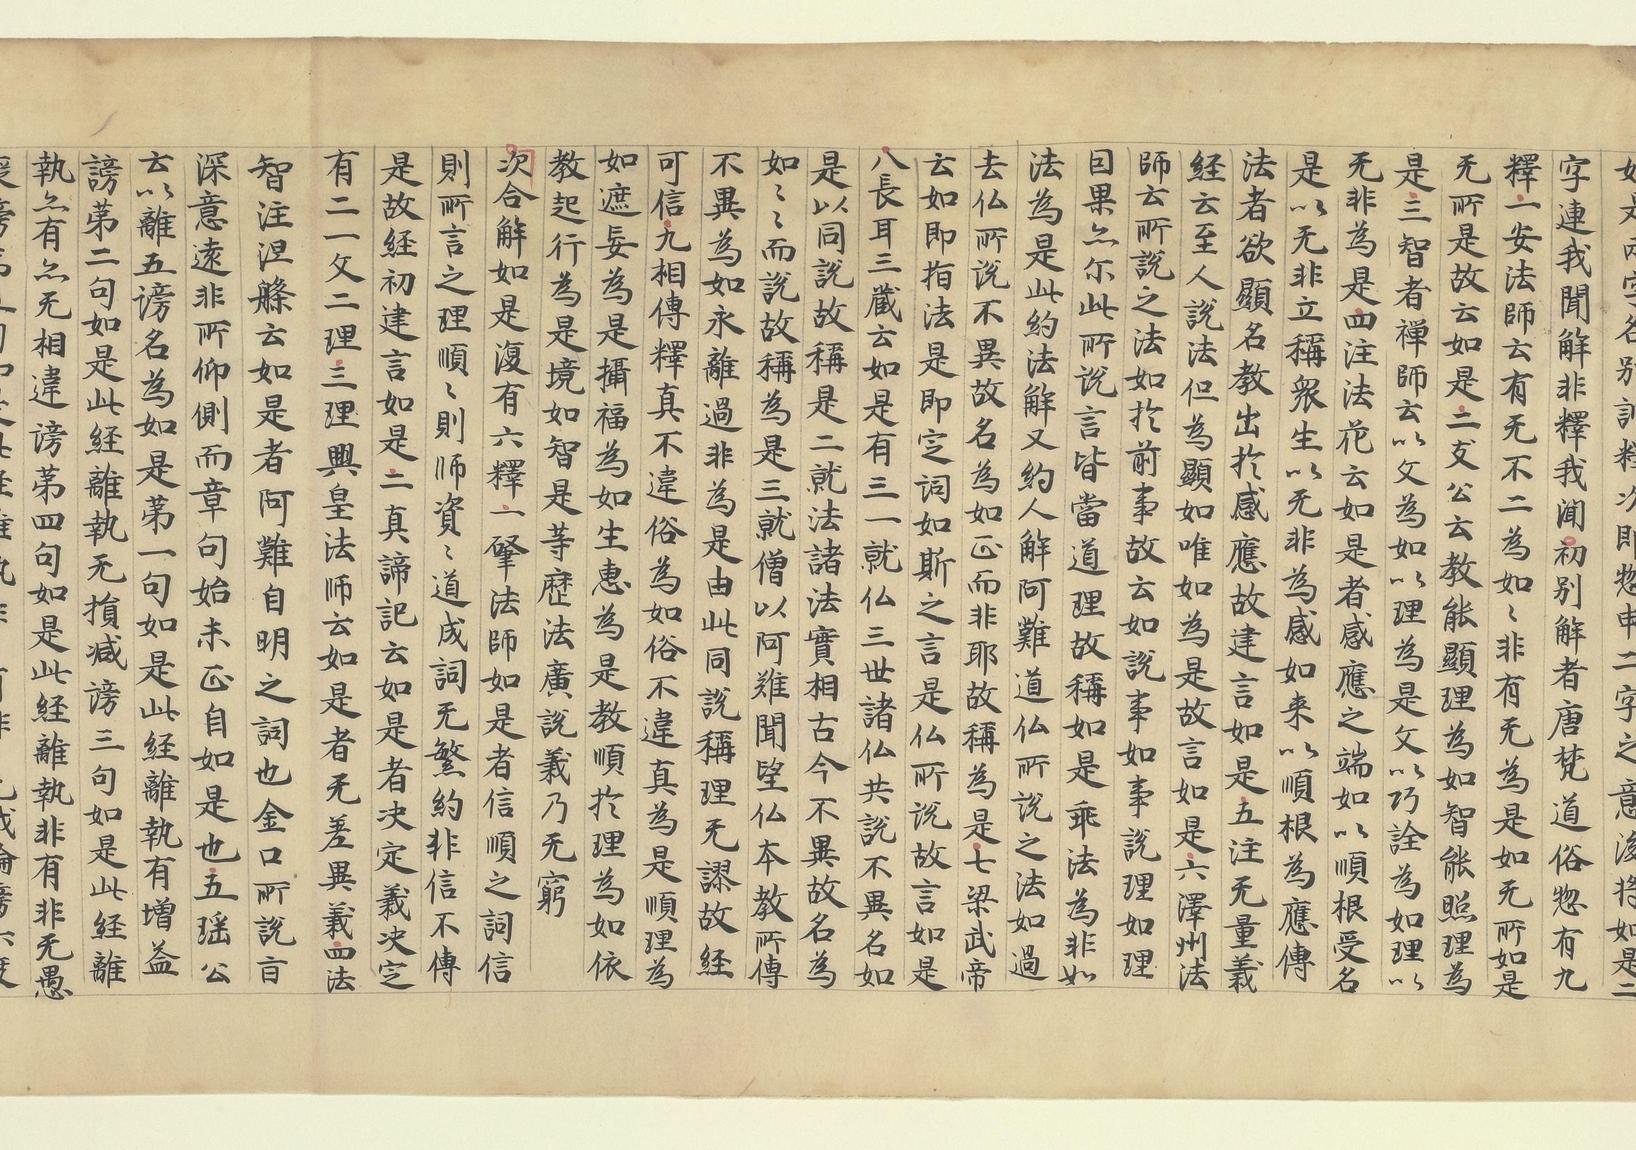 如是兩字各別訓釋次即惣申二字之意後将如是二
字連我聞解非釋我聞初别解者唐梵道俗惣有九
釋一安法師云有无不二為如〻非有无為是如无所如是
无所是故云如是二友公云教能顯理為如智能照理為
是三智者禅師云以文為如以理為是文以巧詮為如理以
无非為是四注法花云如是者感應之端如以順根受名
是以无非立稱衆生以无非為感如来以順根為應傳
法者欲顯名教出扵感應故建言如是五注无量義
経云至人說法但為顯如唯如為是故言如是六澤州法
師云所說之法如扵前事故云如說事如事說理如理
曰果亦尒此所說言皆當道理故稱如是乖法為非如
法為是此約法解又約人解阿難道仏所說之法如過
去仏所說不異故名為如正而非耶故稱為是七梁武帝
云如即指法是即定词如斯之言是仏所說故言如是
八長耳三藏云如是有三一就仏三世諸仏共說不異名如
是以同說故稱是二就法諸法實相古今不異故名為
如〻〻而說故稱為是三就僧以阿難聞望仏本教所傳
不異為如永離過非為是由此同說稱理无謬故経
可信九相傳釋真不違俗為如俗不違真為是順理為
如遮妄為是攝福為如生惠為是教順扵理為如依
教起行為是境如智是等歷法廣說義乃无窮
次合解如是復有六釋一肇法師如是者信順之詞信
則所言之理順〻則師資〻道成詞无繁約非信不傳
是故経初建言如是二真諦記云如是者决定義决定
有二一文二理三理興皇法师云如是者无差異義四法
智注涅槃云如是者阿難自明之詞也金口所說旨
深意遠非所仰側而章句始末正自如是也五瑶公
云以離五謗名為如是第一句如是此経離執有増益
謗第二句如是此経離執无損减謗三句如是此経離
執亦有亦无相違謗第四句如是此経離執非有非无愚